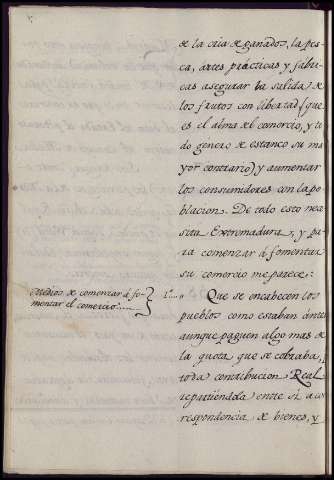 de la cria de ganados, la pes-
ca, artes prácticas y fabri-
cas asegurar la salida de
los frutos con libertad (que
es el alma del comercio, y to
do genero de estanco su ma
yor contrario) y aumentar
los consumidores con la po-
blacion. De todo esto nece
sita Extremadura, y pa
ra comenzar á fomentar
su comercio me parece:
Medios de comenzar á fo-
mentar el comercio......
1º....
Que se encabecen los
pueblos como estaban ántes
aunque paguen algo mas de
la quota que se cobraba, p
toda contribucion Real
repartiéndola entre sí á co
rrespondencia de bienes, y